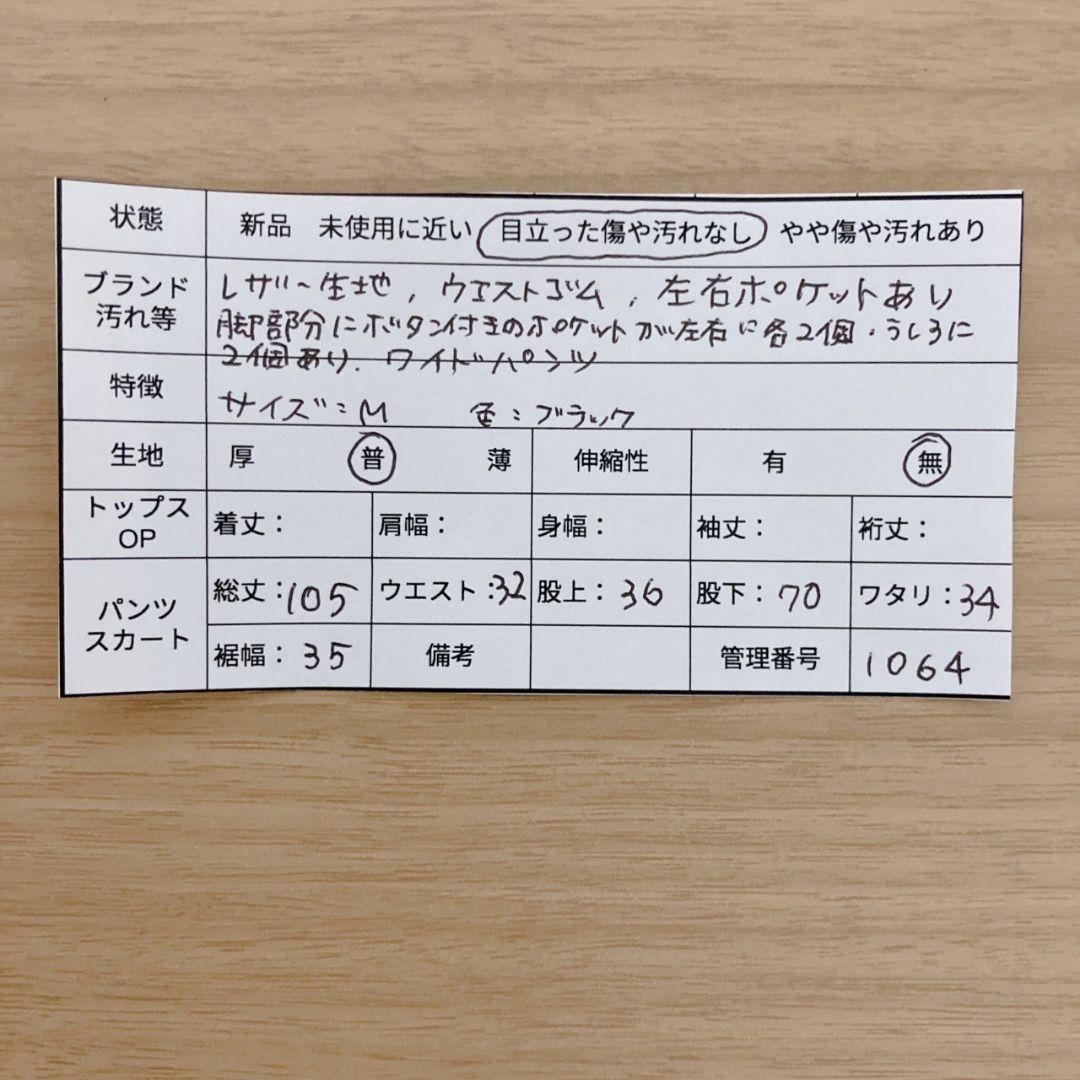 状態 新品 未使用に近い 目立った傷や汚れなし やや傷や汚れあり
ブランド 汚れ等 レザー生地, ウエストゴム, 左右ポケットあり
脚部分にボタン付きのポケットが左右に各2個・うしろに
2個あり. ワイドパンツ
特徴 サイズ:M 色:ブラック
生地 厚 普 薄 伸縮性 有 無
トップス OP 着丈: 肩幅: 身幅: 袖丈: 裄丈:
パンツ スカート 総丈:105 ウエスト:32 股上:36 股下:70 ワタリ:34
裾幅:35 備考 管理番号 1064